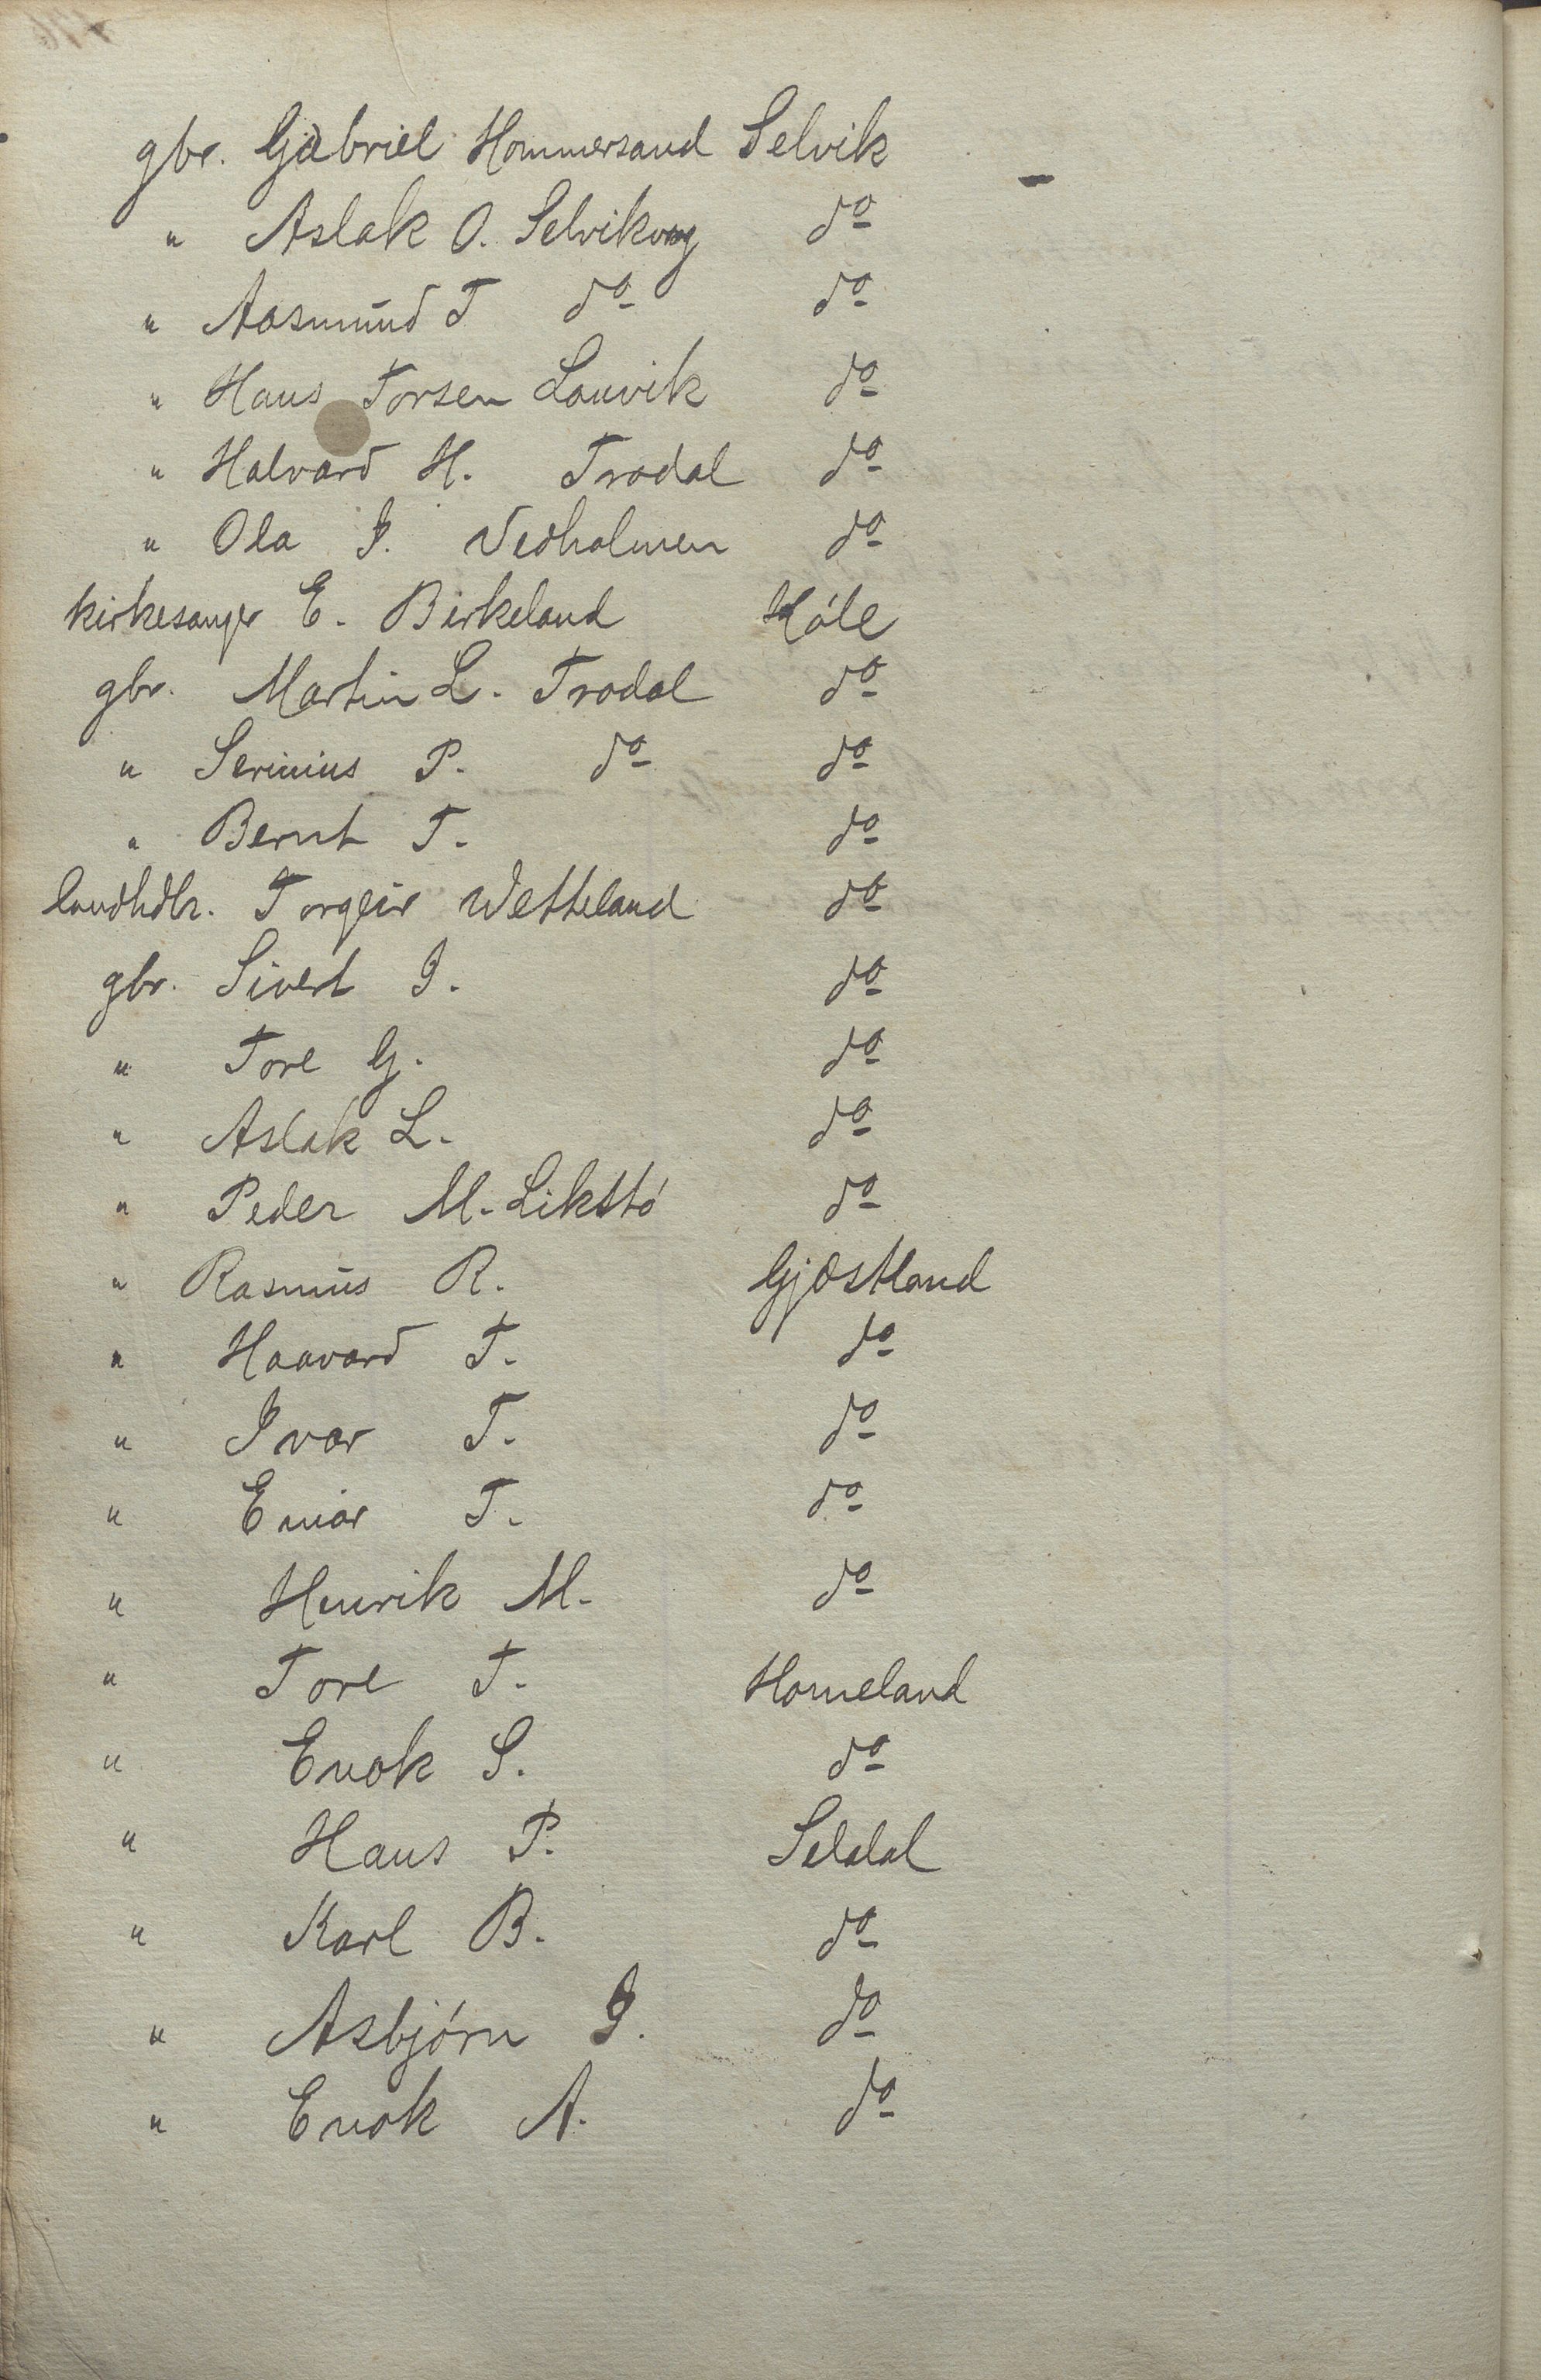 gbr. Gabriel Hommersand Selvik
" Aslak O. Selvikvåg do
" Aasmund T do do
" Hans Torsen Lauvik do
" Halvard H. Trodal do
" Ola I. Vedholmen do
kirkesanger E. Birkeland Høle
gbr. Martin L. Trodal do
" Serinius P. do do
" Bernt T. do
landhdlr. Torgeir Wetteland do
gbr. Sivert I. do
" Tore G. do
" Aslak L. do
" Peder M. Likstø do
" Rasmus R. Gjøstland
" Haavard T. do
" Ivar T. do
" Einar T. do
" Henrik M. do
" Tore T. Homeland
" Enok S. do
" Hans P. Seldal
" Karl B. do
" Asbjørn I. do
" Enok A. do